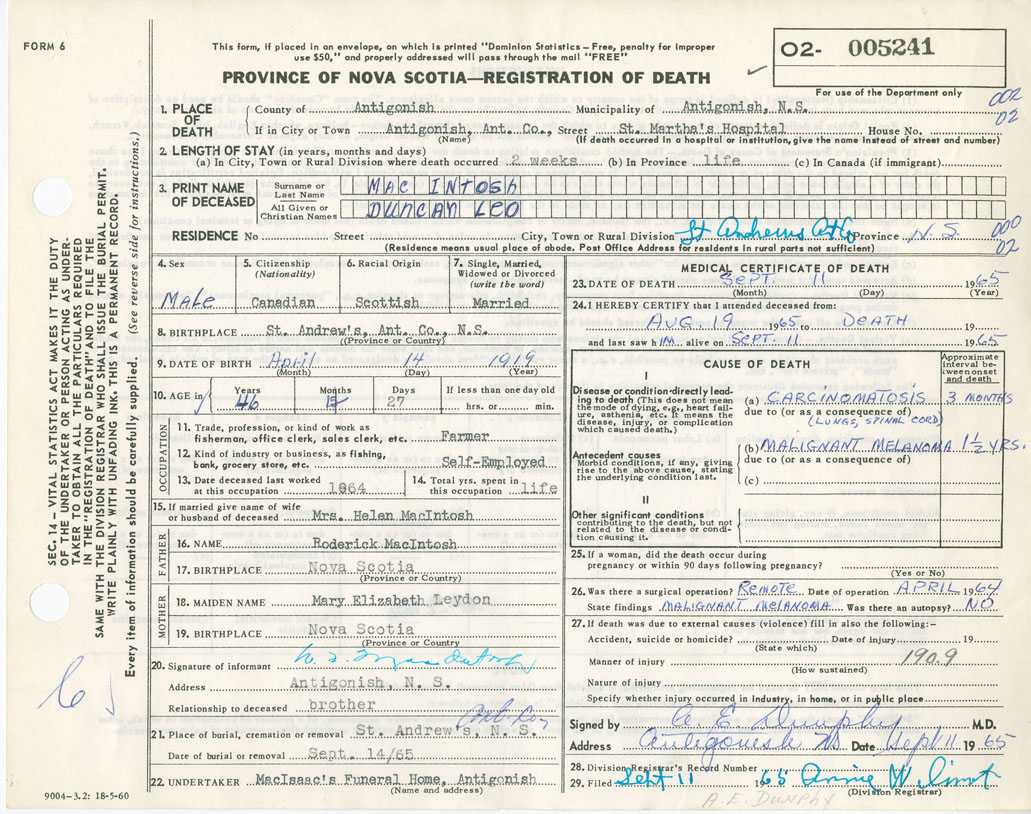 FORM 6
This form, if placed in an envelope, on which is printed "Dominion Statistics—Free, penalty for improper
use $50," and properly addressed will pass through the mail "FREE"
PROVINCE OF NOVA SCOTIA—REGISTRATION OF DEATH
O2- 005241
For use of the Department only
002
02
1. PLACE OF DEATH
County of Antigonish Municipality of Antigonish, N.S.
If in City or Town Antigonish, Ant. Co., Street St. Martha's Hospital House No.
(Name) (If death occurred in a hospital or institution, give the name instead of street and number)
2. LENGTH OF STAY (in years, months and days)
(a) In City, Town or Rural Division where death occurred 2 weeks (b) In Province life (c) In Canada (if immigrant)
3. PRINT NAME OF DECEASED
Surname or Last Name MAC INTOSH
All Given or Christian Names DUNCAN LEO
RESIDENCE No Street City, Town or Rural Division St Andrews Province N.S.
000
02
(Residence means usual place of abode. Post Office Address for residents in rural parts not sufficient)
4. Sex
MALE
5. Citizenship
(Nationality)
Canadian
6. Racial Origin
Scottish
7. Single, Married,
Widowed or Divorced
(write the word)
Married
8. BIRTHPLACE St. Andrew's, Ant. Co., N.S.
(Province or Country)
9. DATE OF BIRTH April 14 1919
(Month) (Day) (Year)
10. AGE in Years Months Days If less than one day old
46 27 hrs. or min.
OCCUPATION
11. Trade, profession, or kind of work as
fisherman, office clerk, sales clerk, etc. Farmer
12. Kind of industry or business, as fishing,
bank, grocery store, etc. Self-Employed
13. Date deceased last worked
at this occupation 1964
14. Total yrs. spent in
this occupation life
15. If married give name of wife
or husband of deceased Mrs. Helen MacIntosh
FATHER
16. NAME Roderick MacIntosh
17. BIRTHPLACE Nova Scotia
(Province or Country)
MOTHER
18. MAIDEN NAME Mary Elizabeth Leydon
19. BIRTHPLACE Nova Scotia
(Province or Country)
20. Signature of informant
Address Antigonish, N. S.
Relationship to deceased brother
21. Place of burial, cremation or removal St. Andrew's, N. S.
Date of burial or removal Sept. 14/65
22. UNDERTAKER MacIsaac's Funeral Home, Antigonish
(Name and address)
MEDICAL CERTIFICATE OF DEATH
23. DATE OF DEATH SEPT. 11 1965
(Month) (Day) (Year)
24. I HEREBY CERTIFY that I attended deceased from:
AUG. 19 1965 to DEATH 19
and last saw hIM alive on SEPT. 11 1965
CAUSE OF DEATH
Approximate
interval between onset
and death
I
Disease or condition directly leading to death (This does not mean
the mode of dying, e.g., heart failure, asthenia, etc. It means the
disease, injury, or complication
which caused death.)
(a) CARCINOMATOSIS 3 MONTHS
due to (or as a consequence of)
(LUNGS, SPINAL CORD)
Antecedent causes
Morbid conditions, if any, giving
rise to the above cause, stating
the underlying condition last.
(b) MALIGNANT MELANOMA 1½ YRS.
due to (or as a consequence of)
(c)
II
Other significant conditions
contributing to the death, but not
related to the disease or condition causing it.
25. If a woman, did the death occur during
pregnancy or within 90 days following pregnancy?
(Yes or No)
26. Was there a surgical operation? REMOTE Date of operation APRIL 1964
State findings MALIGNANT MELANOMA Was there an autopsy? NO
27. If death was due to external causes (violence) fill in also the following:—
Accident, suicide or homicide? Date of injury 19
(State which)
Manner of injury 190.9
(How sustained)
Nature of injury
Specify whether injury occurred in industry, in home, or in public place
Signed by A. E. Dunphy M.D.
Address Antigonish NS Date Sept 11 1965
28. Division Registrar's Record Number
29. Filed Sept 11 1965 Annie
(Division Registrar)
A. E. DUNPHY
SEC. 14—VITAL STATISTICS ACT MAKES IT THE DUTY
OF THE UNDERTAKER OR PERSON ACTING AS UNDERTAKER TO OBTAIN ALL THE PARTICULARS REQUIRED
IN THE "REGISTRATION OF DEATH" AND TO FILE THE
SAME WITH THE DIVISION REGISTRAR WHO SHALL ISSUE THE BURIAL PERMIT.
WRITE PLAINLY WITH UNFADING INK. THIS IS A PERMANENT RECORD.
Every item of information should be carefully supplied. (See reverse side for instructions.)
9004-3.2: 18-5-60